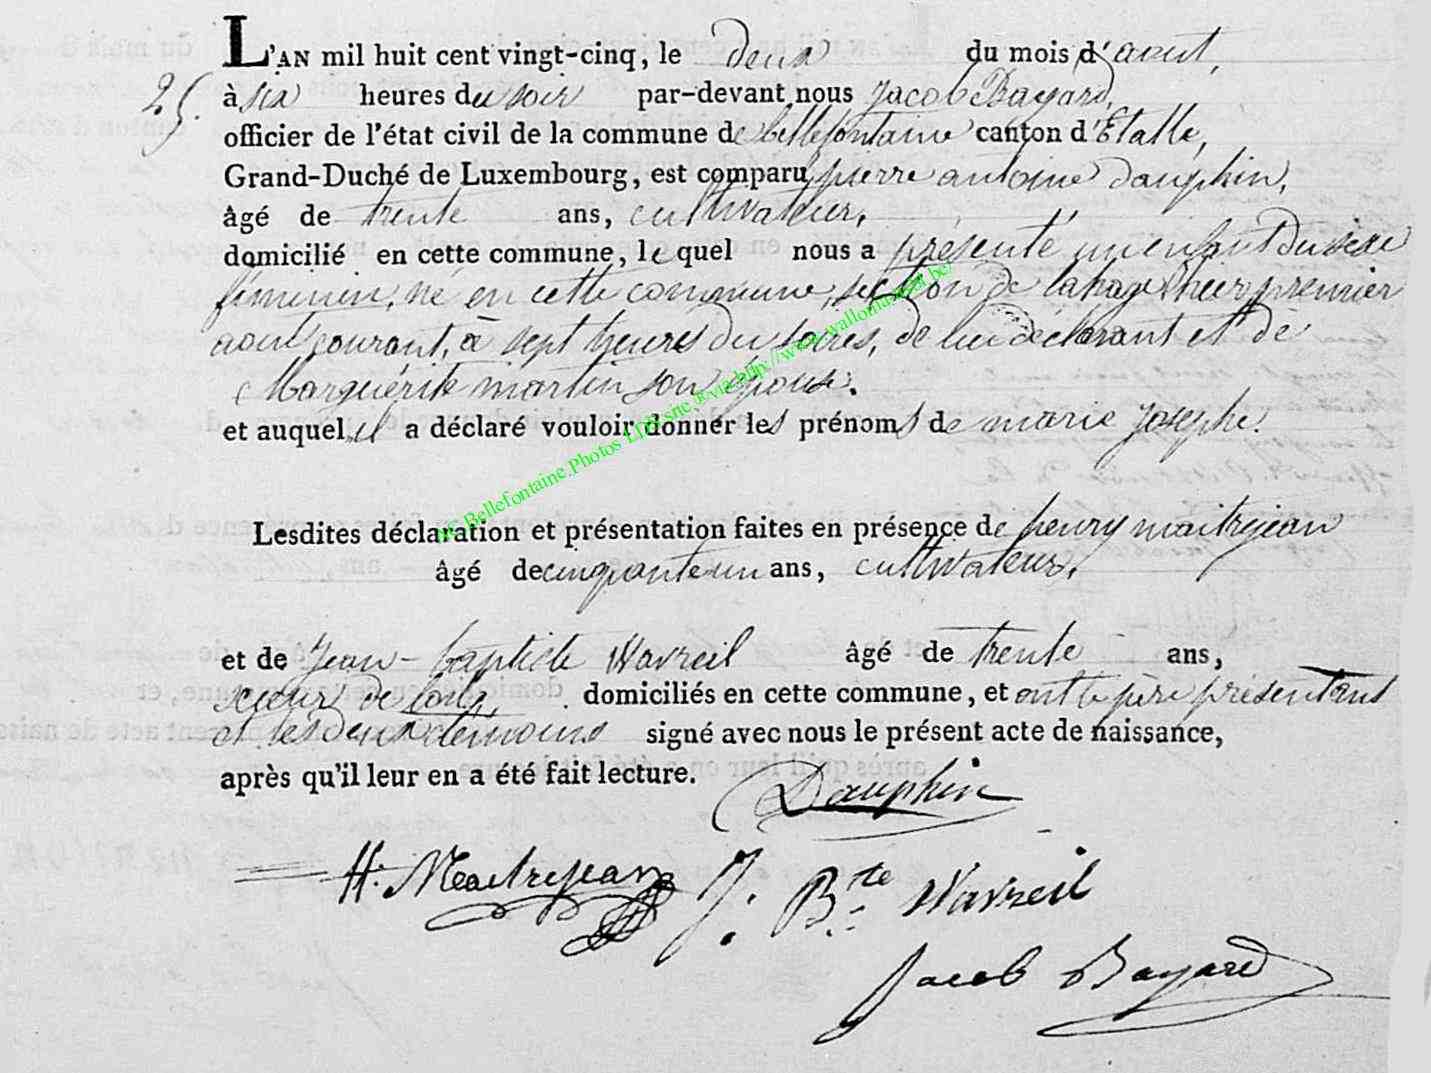 L'AN mil huit cent vingt-cinq, le deux du mois d'aout,
25.
à six heures du soir par-devant nous Jacob Bayard,
officier de l'état civil de la commune de bellefontaine canton d'Etalle,
Grand-Duché de Luxembourg, est comparu pierre antoine Dauphin,
âgé de trente ans, cultivateur,
domicilié en cette commune, lequel nous a présenté un enfant du sexe
féminin, né en cette commune, section de lahage hier premier
aout courant, à sept heures du soires, de lui déclarant et de
Marguérite martin son épouse.
et auquel il a déclaré vouloir donner les prénoms de marie Josephe.
Bellefontaine Photos LDB snc ® via http://www.wallonia
Lesdites déclaration et présentation faites en présence de henry maitrejean
âgé de cinquante un ans, cultivateur,
et de Jean-baptiste Wavreil âgé de trente ans,
domiciliés en cette commune, et ont le père présentant
et les deux témoins signé avec nous le présent acte de naissance,
après qu'il leur en a été fait lecture.
Dauphin
H. Maitrejean J. Bte Wavreil
Jacob Bayard